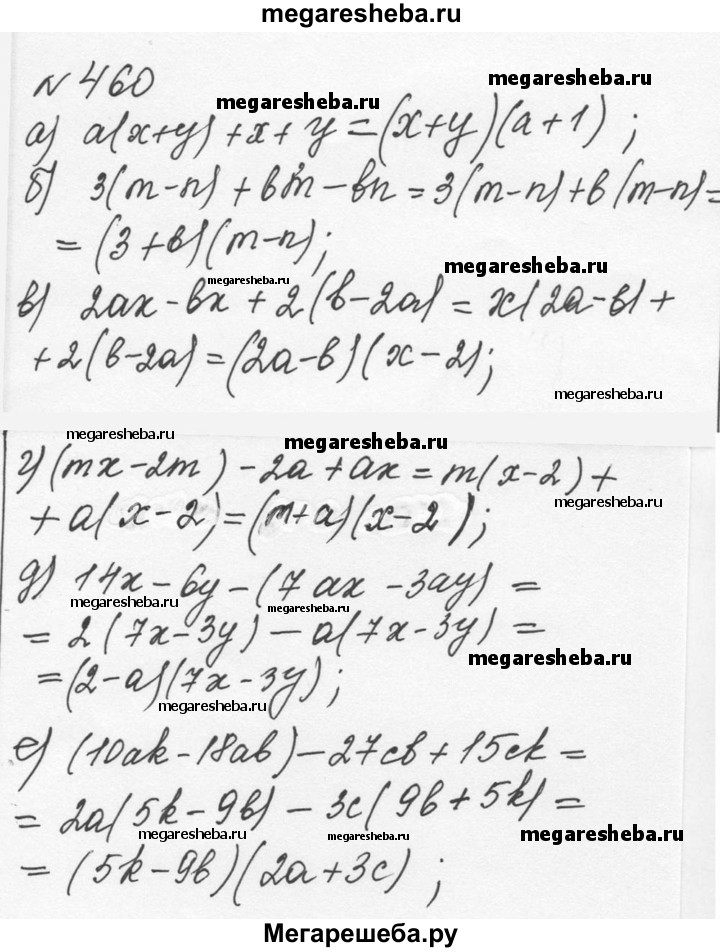 megaresheba.ru
№ 460
megaresheba.ru
megaresheba.ru
а) a(x+y)+x+y=(x+y)(a+1);
б) 3(m-n)+bm-bn=3(m-n)+b(m-n)=
=(3+b)(m-n);
megaresheba.ru
megaresheba.ru
в) 2ax-bx+2(b-2a)=x(2a-b)+
+2(b-2a)=(2a-b)(x-2);
megaresheba.ru
megaresheba.ru
megaresheba.ru
г) (mx-2m)-2a+ax=m(x-2)+
+a(x-2)=(m+a)(x-2);
megaresheba.ru
д) 14x-6y-(7ax-3ay)=
megaresheba.ru
megaresheba.ru
=2(7x-3y)-a(7x-3y)=
megaresheba.ru
=(2-a)(7x-3y);
megaresheba.ru
е) (10ak-18ab)-27cb+15ck=
=2a(5k-9b)-3c(9b+5k)=
megaresheba.ru
megaresheba.ru
megaresheba.ru
=(5k-9b)(2a+3c);
Мегарешеба.ру